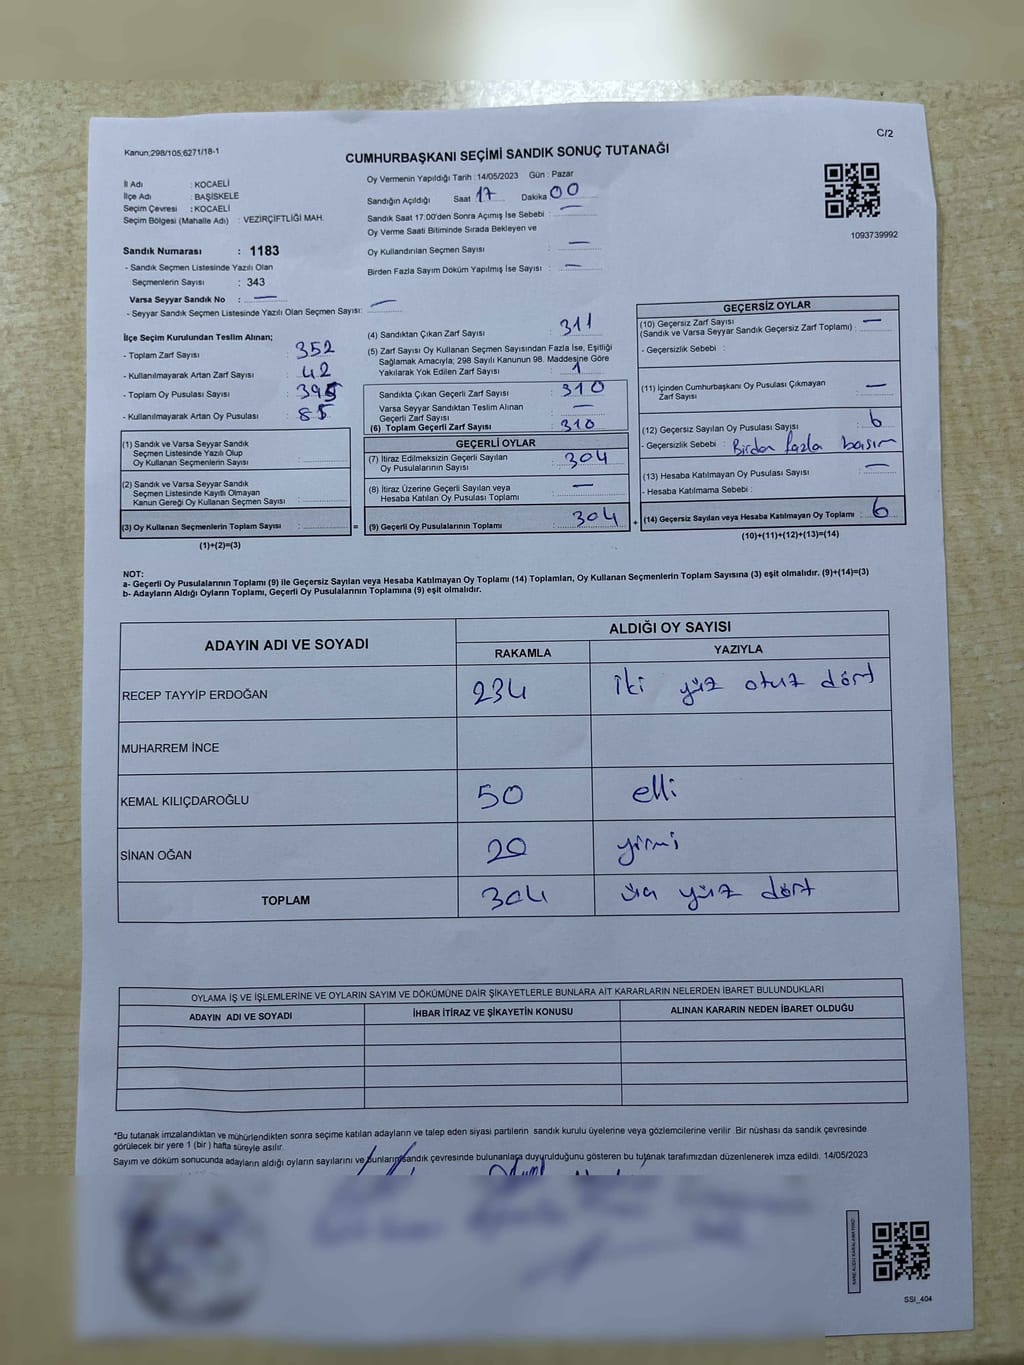 C/2
Kanun:298/105;6271/18-1
CUMHURBAŞKANI SEÇİMİ SANDIK SONUÇ TUTANAĞI
İl Adı : KOCAELİ
İlçe Adı : BAŞİSKELE
Seçim Çevresi : KOCAELİ
Seçim Bölgesi (Mahalle Adı) : VEZİRÇİFTLİĞİ MAH.
Sandık Numarası : 1183
- Sandık Seçmen Listesinde Yazılı Olan
Seçmenlerin Sayısı : 343
Varsa Seyyar Sandık No : —
- Seyyar Sandık Seçmen Listesinde Yazılı Olan Seçmen Sayısı: —
Oy Vermenin Yapıldığı Tarih : 14/05/2023 Gün : Pazar
Sandığın Açıldığı Saat 17 Dakika 00
Sandık Saat 17:00'den Sonra Açımış İse Sebebi : —
Oy Verme Saati Bitiminde Sırada Bekleyen ve
Oy Kullandırılan Seçmen Sayısı : —
Birden Fazla Sayım Döküm Yapılmış İse Sayısı : —
1093739992
İlçe Seçim Kurulundan Teslim Alınan;
- Toplam Zarf Sayısı : 352
- Kullanılmayarak Artan Zarf Sayısı : 42
- Toplam Oy Pusulası Sayısı : 395
- Kullanılmayarak Artan Oy Pusulası : 85
(1) Sandık ve Varsa Seyyar Sandık
Seçmen Listesinde Yazılı Olup
Oy Kullanan Seçmenlerin Sayısı :
(2) Sandık ve Varsa Seyyar Sandık
Seçmen Listesinde Kayıtlı Olmayan
Kanun Gereği Oy Kullanan Seçmen Sayısı :
(3) Oy Kullanan Seçmenlerin Toplam Sayısı :
(1)+(2)=(3)
=
(4) Sandıktan Çıkan Zarf Sayısı : 311
(5) Zarf Sayısı Oy Kullanan Seçmen Sayısından Fazla İse, Eşitliği
Sağlamak Amacıyla; 298 Sayılı Kanunun 98. Maddesine Göre
Yakılarak Yok Edilen Zarf Sayısı : 1
Sandıkta Çıkan Geçerli Zarf Sayısı : 310
Varsa Seyyar Sandıktan Teslim Alınan
Geçerli Zarf Sayısı : —
(6) Toplam Geçerli Zarf Sayısı : 310
GEÇERLİ OYLAR
(7) İtiraz Edilmeksizin Geçerli Sayılan
Oy Pusulalarının Sayısı : 304
(8) İtiraz Üzerine Geçerli Sayılan veya
Hesaba Katılan Oy Pusulası Toplamı : —
(9) Geçerli Oy Pusulalarının Toplamı : 304
+
GEÇERSİZ OYLAR
(10) Geçersiz Zarf Sayısı
(Sandık ve Varsa Seyyar Sandık Geçersiz Zarf Toplamı) : —
- Geçersizlik Sebebi :
(11) İçinden Cumhurbaşkanı Oy Pusulası Çıkmayan
Zarf Sayısı : —
(12) Geçersiz Sayılan Oy Pusulası Sayısı : 6
- Geçersizlik Sebebi : Birden fazla basım
(13) Hesaba Katılmayan Oy Pusulası Sayısı : —
- Hesaba Katılmama Sebebi :
(14) Geçersiz Sayılan veya Hesaba Katılmayan Oy Toplamı : 6
(10)+(11)+(12)+(13)=(14)
NOT:
a- Geçerli Oy Pusulalarının Toplamı (9) ile Geçersiz Sayılan veya Hesaba Katılmayan Oy Toplamı (14) Toplamları, Oy Kullanan Seçmenlerin Toplam Sayısına (3) eşit olmalıdır. (9)+(14)=(3)
b- Adayların Aldığı Oyların Toplamı, Geçerli Oy Pusulalarının Toplamına (9) eşit olmalıdır.
ADAYIN ADI VE SOYADI
ALDIĞI OY SAYISI
RAKAMLA YAZIYLA
RECEP TAYYİP ERDOĞAN 234 iki yüz otuz dört
MUHARREM İNCE
KEMAL KILIÇDAROĞLU 50 elli
SİNAN OĞAN 20 yirmi
TOPLAM 304 üç yüz dört
OYLAMA İŞ VE İŞLEMLERİNE VE OYLARIN SAYIM VE DÖKÜMÜNE DAİR ŞİKAYETLERLE BUNLARA AİT KARARLARIN NELERDEN İBARET BULUNDUKLARI
ADAYIN ADI VE SOYADI İHBAR İTİRAZ VE ŞİKAYETİN KONUSU ALINAN KARARIN NEDEN İBARET OLDUĞU
*Bu tutanak imzalandıktan ve mühürlendikten sonra seçime katılan adayların ve talep eden siyasi partilerin sandık kurulu üyelerine veya gözlemcilerine verilir .Bir nüshası da sandık çevresinde
görülecek bir yere 1 (bir ) hafta süreyle asılır.
Sayım ve döküm sonucunda adayların aldığı oyların sayılarını ve bunların sandık çevresinde bulunanlara duyurulduğunu gösteren bu tutanak tarafımızdan düzenlenerek imza edildi. 14/05/2023
SSI_404